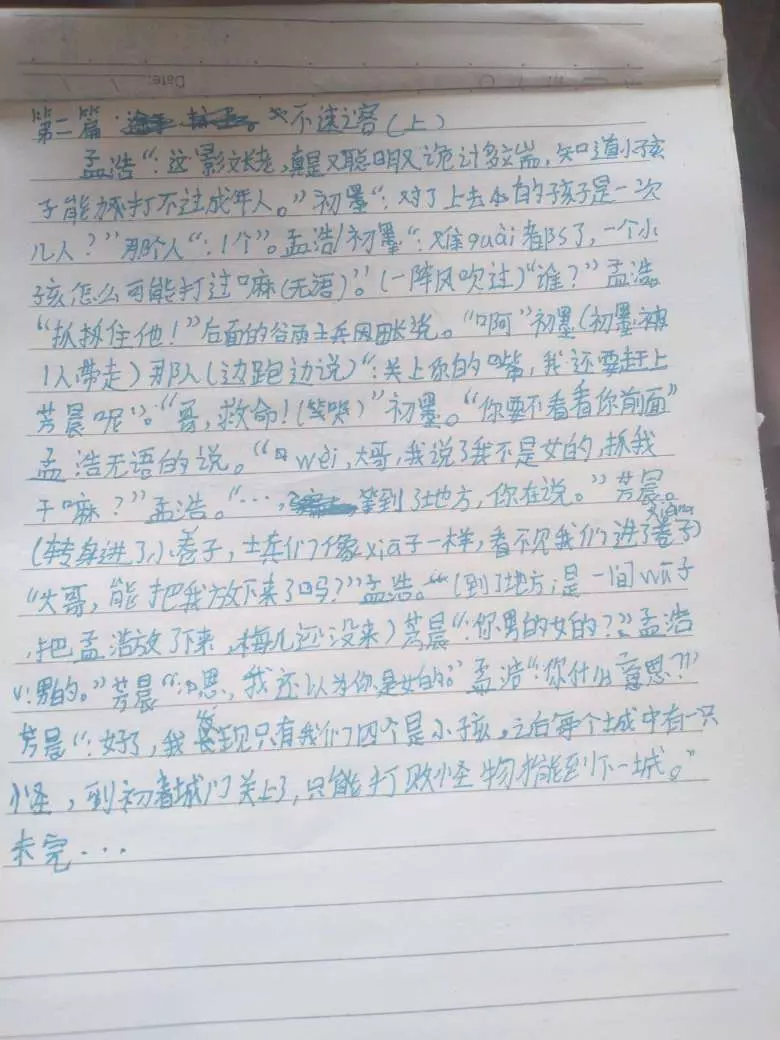 Date:
第二篇 不速之客(上)
孟浩“:这影文长老,真是又聪明又诡计多端,知道小孩
子能打不过成年人。”初墨“:对了上去的孩子是一次
几人?”那个人“:1个”。孟浩/初墨“:难guài都s了,一个小
孩怎么可能打过嘛(无语)”。(一阵风吹过)“谁?”孟浩。
“抓抓住他!”后面的谷雨士兵团长说。“啊”初墨(初墨被
1人带走)那人(边跑边说)“:关上你的嘴,我还要赶上
芳晨呢”。“哥,救命!(笑哭)”初墨。“你要不看看你前面”
孟浩无语的说。“wèi,大哥,我说了我不是女的,抓我
干嘛?”孟浩。“…,等到了地方,你在说。”芳晨。
(转身进了小巷子,士兵们像xiā子一样,看不见我们进了巷子)
“大哥,能把我放下来了吗?”孟浩。“(到了地方,是一间wū子
,把孟浩放了下来,梅儿还没来)芳晨“:你男的女的?”孟浩
“:男的。”芳晨“:思,我还以为你是女的。”孟浩“:你什么意思?”
芳晨“:好了,我发现只有我们四个是小孩,之后每个城中有一只
怪,到初着城门关上了,只能打败怪物才能到下一城。”
未完...